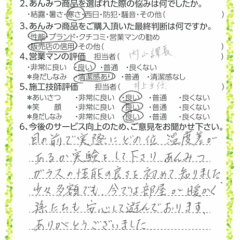 2.あんみつ商品を選ばれた際の悩みは何でしたか。
・結露・暑さ・寒さ・西日・防犯・騒音・その他(　)
3.あんみつ商品をご購入頂いた最終判断は何ですか。
・性能・ブランド・クチコミ・営業マンの勧め
・販売店の信用・その他(　)
4.営業マンの評価　担当者(　)
・非常に良い　・良い　・普通　・良くない
＊身だしなみ　・清潔感あり　・普通　・清潔感なし
5.施工技師評価　担当者(　)
＊あいさつ　・非常に良い　・良い　・普通　・良くない
＊笑　顔　・非常に良い　・良い　・普通　・良くない
＊身だしなみ　・非常に良い　・良い　・普通　・良くない
6.今後のサービス向上のため、ご意見をお聞かせ下さい。
目の前で実際にどの位、温度差が
あるか実験をして下さり、あんみつ
ガラスの性能の良さを初めて知りました
少々高額でも、今では部屋が暖かく
孫たちも安心して遊んでおります。
ありがとうございました